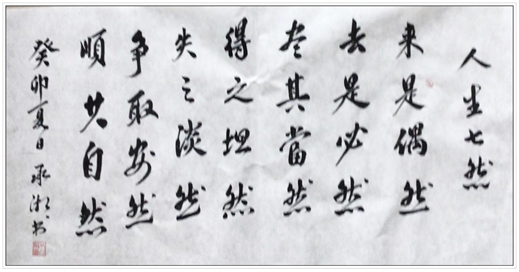 人生七然
来是偶然
去是必然
尽其當然
得之坦然
失之淡然
争取安然
順其自然
癸卯夏日承湘书